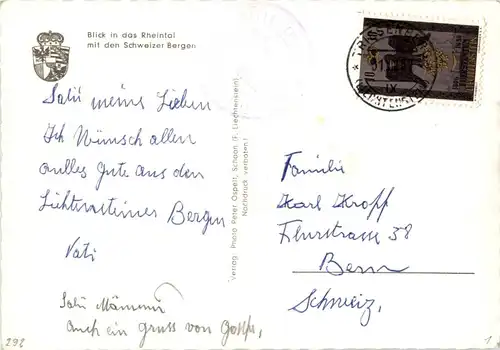 Blick in das Rheintal
mit den Schweizer Bergen
Salü meine Lieben
Ich Wünsch allen
alles Gute aus den
Lichtensteiner Bergen
Vati
Salü
auch ein gruss von
Verlag: Photo Peter Ospelt, Schaan (F. Liechtenstein)
Nachdruck verboten!
Familie
Karl Kropf
58
Bern
Schweiz,
298
1